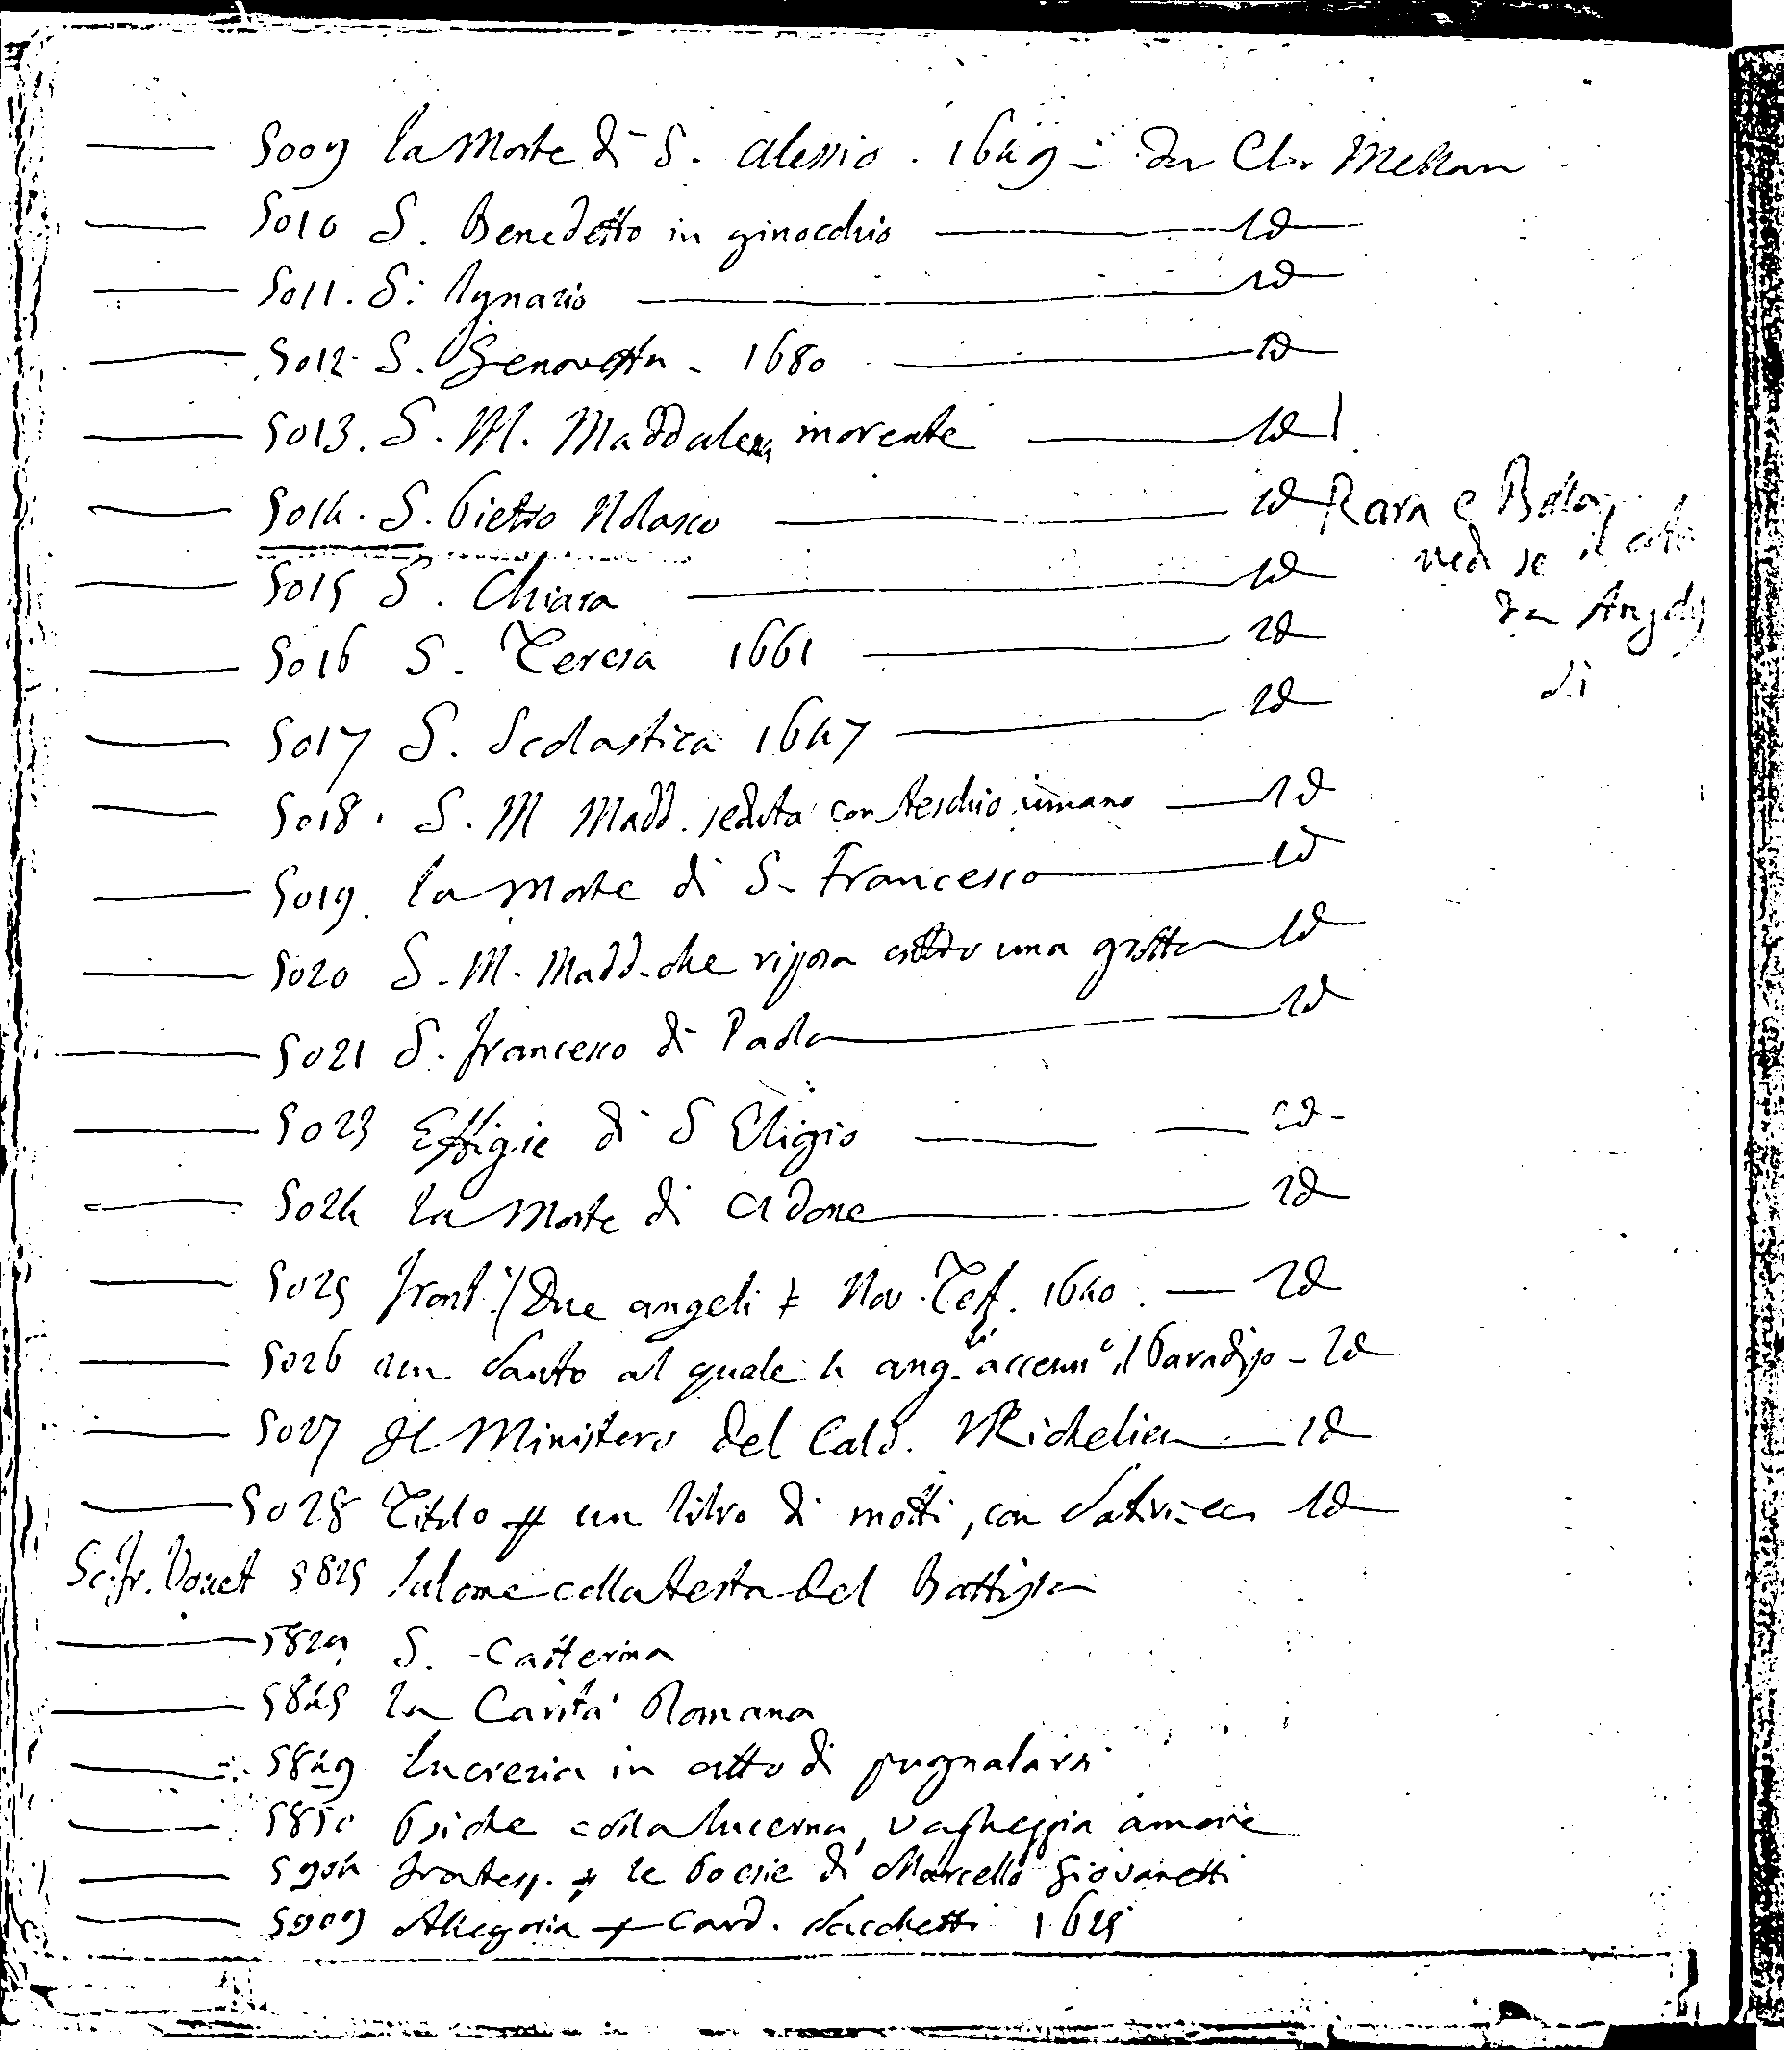 ——— 5009 la Morte di S. Alessio . 1649 - da Cl. Mellan
——— 5010 S. Benedetto in ginocchio ——— id
——— 5011. S. Ignazio ——— id
——— 5012 - S. Genoveffa - 1680 ——— id
——— 5013. S. M. Maddalena morente ——— id
——— 5014. S. Pietro Nolasco ——— id Rara e Bella
vedi se il
da Angely
di
——— 5015 S. Chiara ——— id
——— 5016 S. Teresa 1661 ——— id
——— 5017 S. Scolastica 1647 ——— id
——— 5018 . S. M Madd. seduta con teschio umano — id
——— 5019. la Morte di S. Francesco ——— id
——— 5020 S. M. Madd. che riposa sotto una grotta — id
——— 5021 S. Francesco di Paola ——— id
——— 5023 Effigie di S Eligio ——— id -
——— 5024 la Morte di Adone ——— id
——— 5025 front. (Due angeli Nov. Test. 1640 . — id
——— 5026 un Santo al quale ang. accenn il Paradiso - id
——— 5027 Il Ministero del Cald. Richelieu — id
——— 5028 Titolo un libro di motti, con id
Sc. fr. Vouet 5825 Salome colla testa del Battista
——— 5829 S. Catterina
——— 5845 la Carità Romana
——— 5849 Lucrezia in atto di pugnalarsi
——— 5850 Psiche colla lucerna, vagheggia amore
——— 5904 frontesp. le Poesie di Marcello Giovanetti
——— 5909 Allegoria Card. Sacchetti 1625